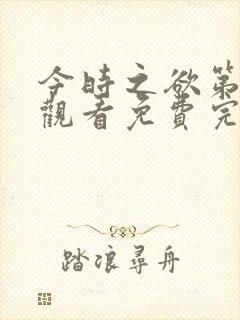 今時之欲第
觀看免費完
踏浪尋舟